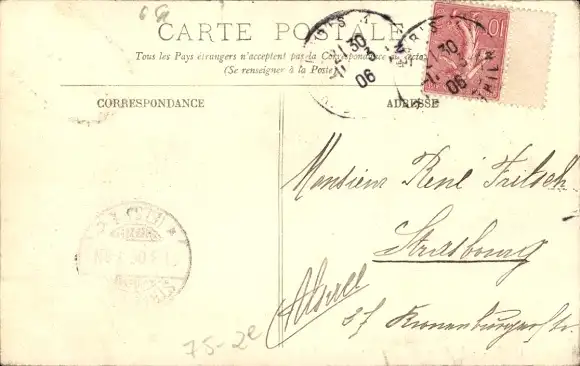 CARTE POSTALE
Tous les Pays étrangers n'acceptent pas la Correspondance au
(Se renseigner à la Poste)
CORRESPONDANCE
ADRESSE
10
PARIS
30
06
30
06
Monsieur René Fritsch
Strasbourg
Alsace
37 Kronenburgerstr.
75-2e